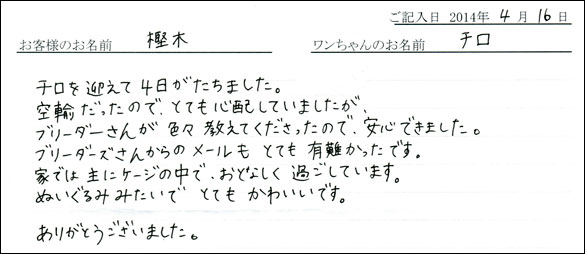 ご記入日 2014年 4月 16日
お客様のお名前 樫木 ワンちゃんのお名前 チロ
チロを迎えて4日がたちました。
空輸だったので、とても心配していましたが、
ブリーダーさんが色々教えてくださったので、安心できました。
ブリーダーズさんからのメールもとても有難かったです。
家では主にケージの中で、おとなしく過ごしています。
ぬいぐるみみたいでとてもかわいいです。
ありがとうございました。